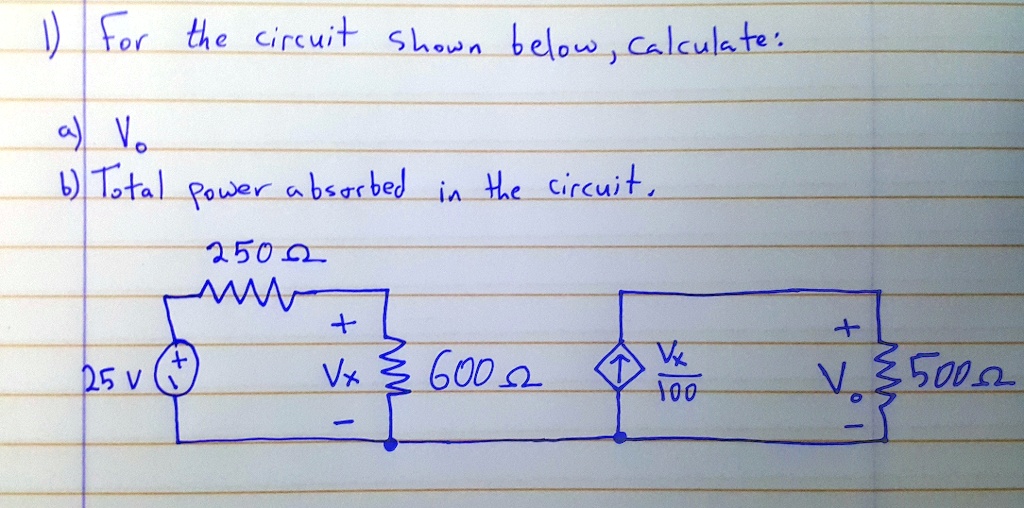 1) For the circuit shown below, calculate:
a) Vo
b) Total power absorbed in the circuit.
250 Ω
25 V
+
-
+
Vx
-
600 Ω
Vx
100
+
Vo
-
500 Ω